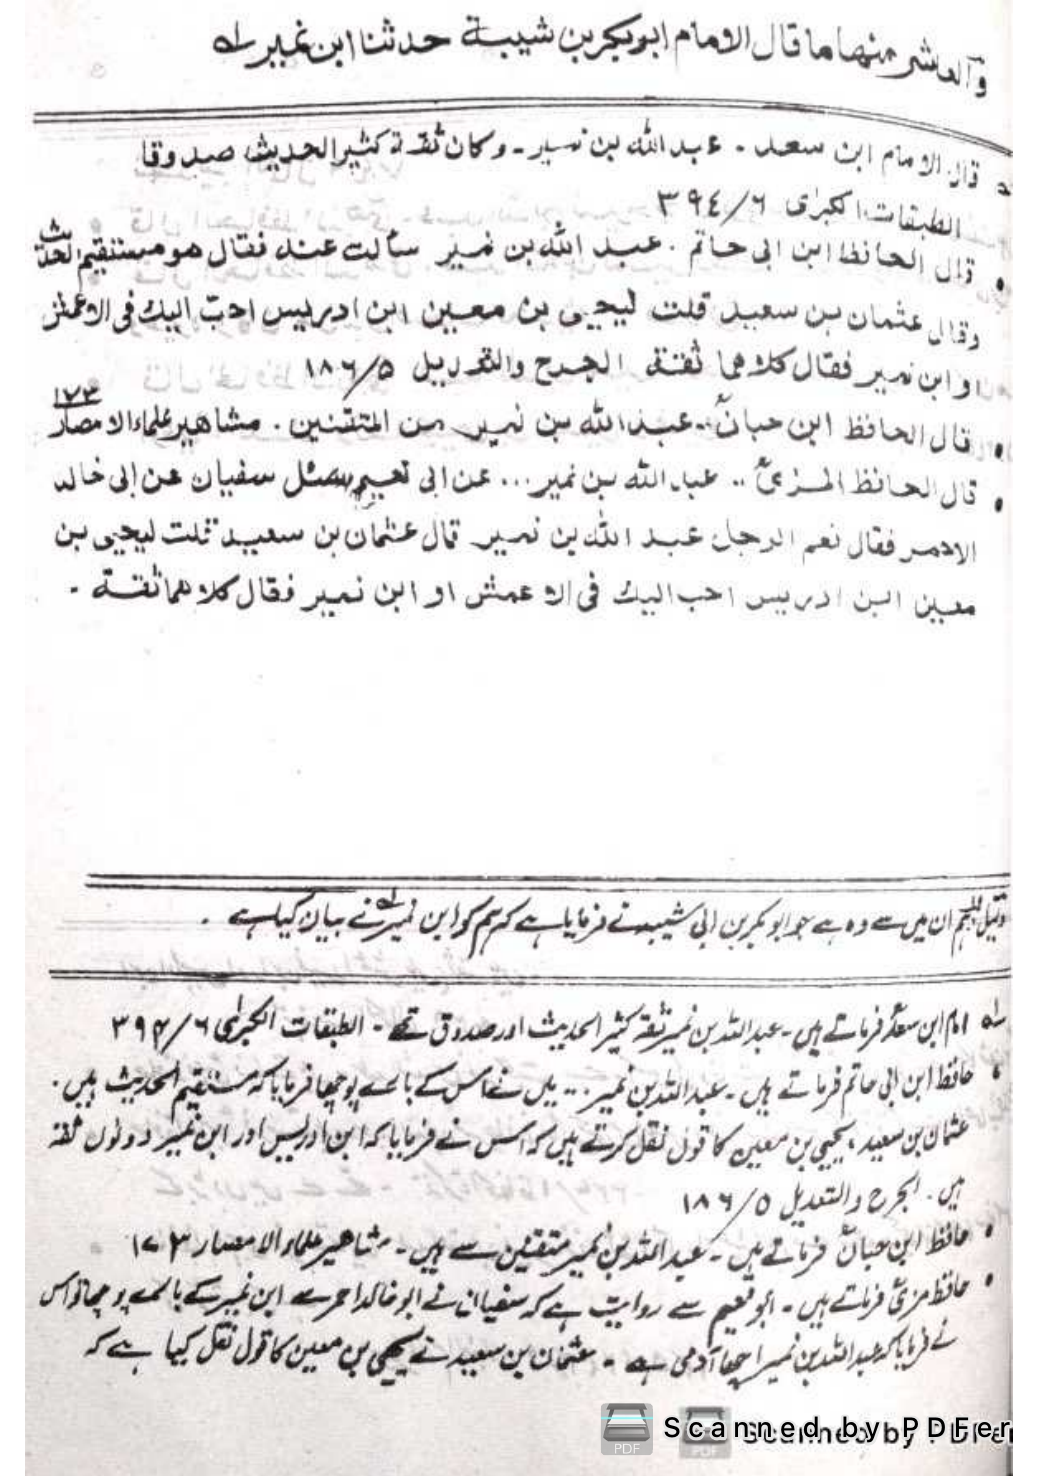 والعاشر منها ما قال الامام ابوبكر بن شيبة حدثنا ابن نمير لہ
قال الامام ابن سعد - عبد الله بن نمير - وكان ثقة كثير الحديث صدوقا
الطبقات الكبرى ٣٩٤/٦
• قال الحافظ ابن ابى حاتم . عبد الله بن نمير سألت عنه فقال هو مستقيم الحديث
وقال عثمان بن سعيد قلت ليحيى بن معين ابن ادريس احب اليك فى الاعمش
او ابن نمير فقال كلاهما ثقة الجرح والتعديل ١٨٦/٥
• قال الحافظ ابن حبانؒ - عبد الله بن نمير من المتقنين . مشاهير علماء الامصار ١٧٣
• قال الحافظ المزىؒ .. عبد الله بن نمير ... عن ابى نعيم سئل سفيان عن ابى خالد
الاحمر فقال نعم الرجل عبد الله بن نمير قال عثمان بن سعيد قلت ليحيى بن
معين ابن ادريس احب اليك فى الاعمش او ابن نمير فقال كلاهما ثقة -
دلیل دہم ان میں سے وہ ہے جو ابو بکر بن ابی شیبہ نے فرمایا ہے کہ ہم کو ابن نمیر لہ نے بیان کیا ہے .
لہ امام ابن سعدؒ فرماتے ہیں - عبد اللہ بن نمیر ثقہ کثیر الحدیث اور صدوق تھے - الطبقات الکبریٰ ٣٩٤/٦
• حافظ ابن ابی حاتم فرماتے ہیں - عبد اللہ بن نمیر ... میں نے اس کے بارے پوچھا فرمایا کہ مستقیم الحدیث ہیں .
عثمان بن سعید ، یحیی بن معین کا قول نقل کرتے ہیں کہ اس نے فرمایا کہ ابن ادریس اور ابن نمیر دونوں ثقہ
ہیں . الجرح والتعدیل ١٨٦/٥
• حافظ ابن حبانؒ فرماتے ہیں - عبد اللہ بن نمیر متقنین سے ہیں - مشاھیر علماء الامصار ١٧٣
• حافظ مزیؒ فرماتے ہیں - ابو نعیم سے روایت ہے کہ سفیان نے ابو خالد احمر سے ابن نمیر کے بارے پوچھا تو اس
نے فرمایا کہ عبد اللہ بن نمیر اچھا آدمی ہے - عثمان بن سعید نے یحیی بن معین کا قول نقل کیا ہے کہ
Scanned by PDFer